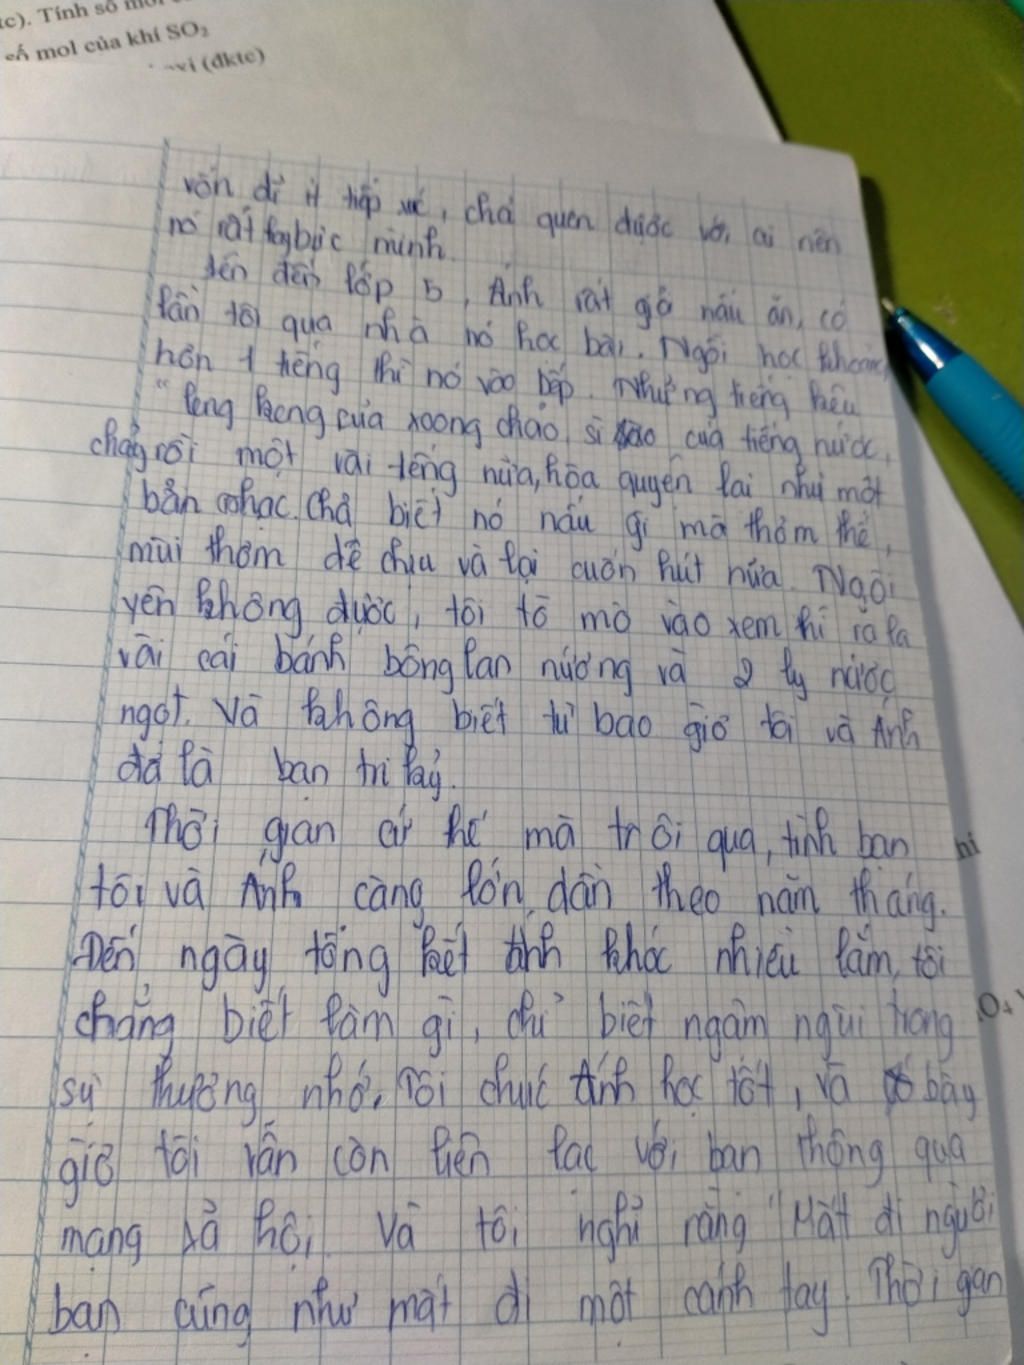 số mol của khí SO₂
(đktc)
vốn dĩ ít tiếp xúc, chả quen được với ai nên
nó rất bực mình.
lên đến lớp 5, Ánh rất giỏ nấu ăn, có
lần tôi qua nhà nó học bài. Ngồi học khoảng
hơn 1 tiếng thì nó vào bếp. Những tiếng kêu
"leng keng của xoong chảo, sì sào của tiếng nước,
rồi một vài tếng nữa, hòa quyện lại như một
bản nhạc. Chả biết nó nấu gì mà thơm thế,
mùi thơm dễ chịu và lại cuốn hút nữa. Ngồi
yên không được, tôi tò mò vào xem thì ra là
vài cái bánh bông lan nướng và 2 ly nước
ngọt. Và không biết từ bao giờ tôi và Ánh
đã là bạn tri kỷ.
Thời gian cứ thế mà trôi qua, tình bạn
tôi và Ánh càng lớn dần theo năm tháng.
Đến ngày tổng kết Ánh khóc nhiều lắm, tôi
chẳng biết làm gì, chỉ biết ngậm ngùi trong
sự thương nhớ. Tôi chúc Ánh học tốt, và bây
giờ tôi vẫn còn liên lạc với bạn thông qua
mạng xã hội. Và tôi nghĩ rằng "Mất đi người
bạn cũng như mất đi một cánh tay. Thời gan